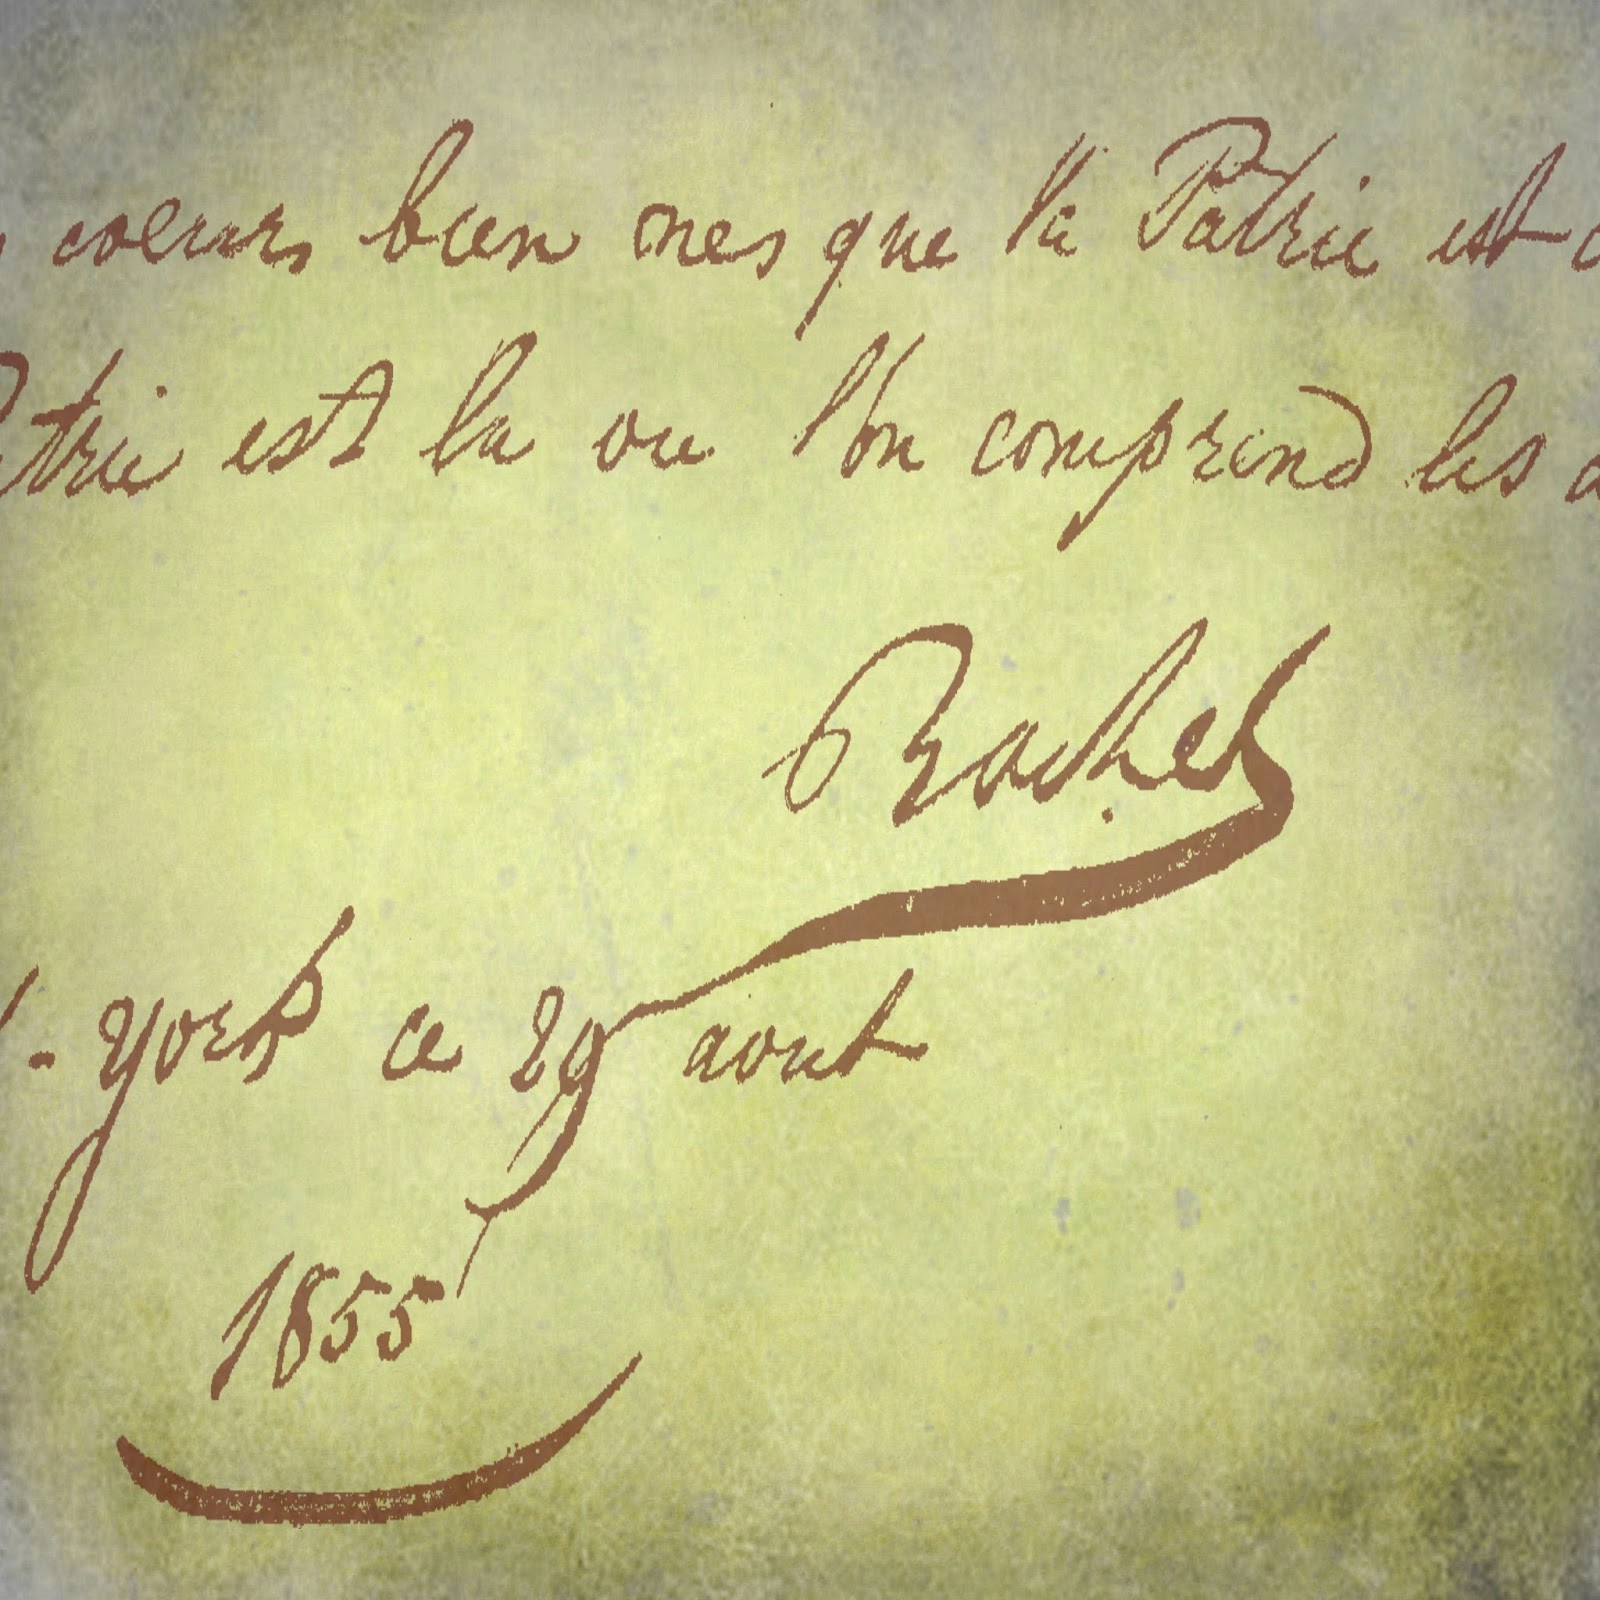 coeurs bien nes que la Patrie est
est la ou l'on comprend les
Rachel
- York ce 29 aout
1855